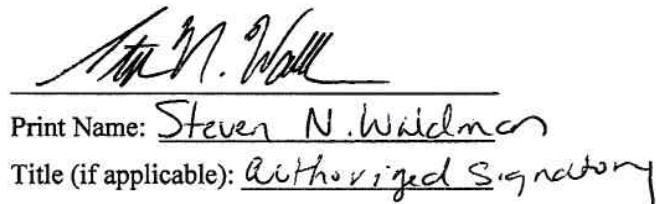 Print Name: Steven N. Waldman
Title (if applicable): Authorized Signatory